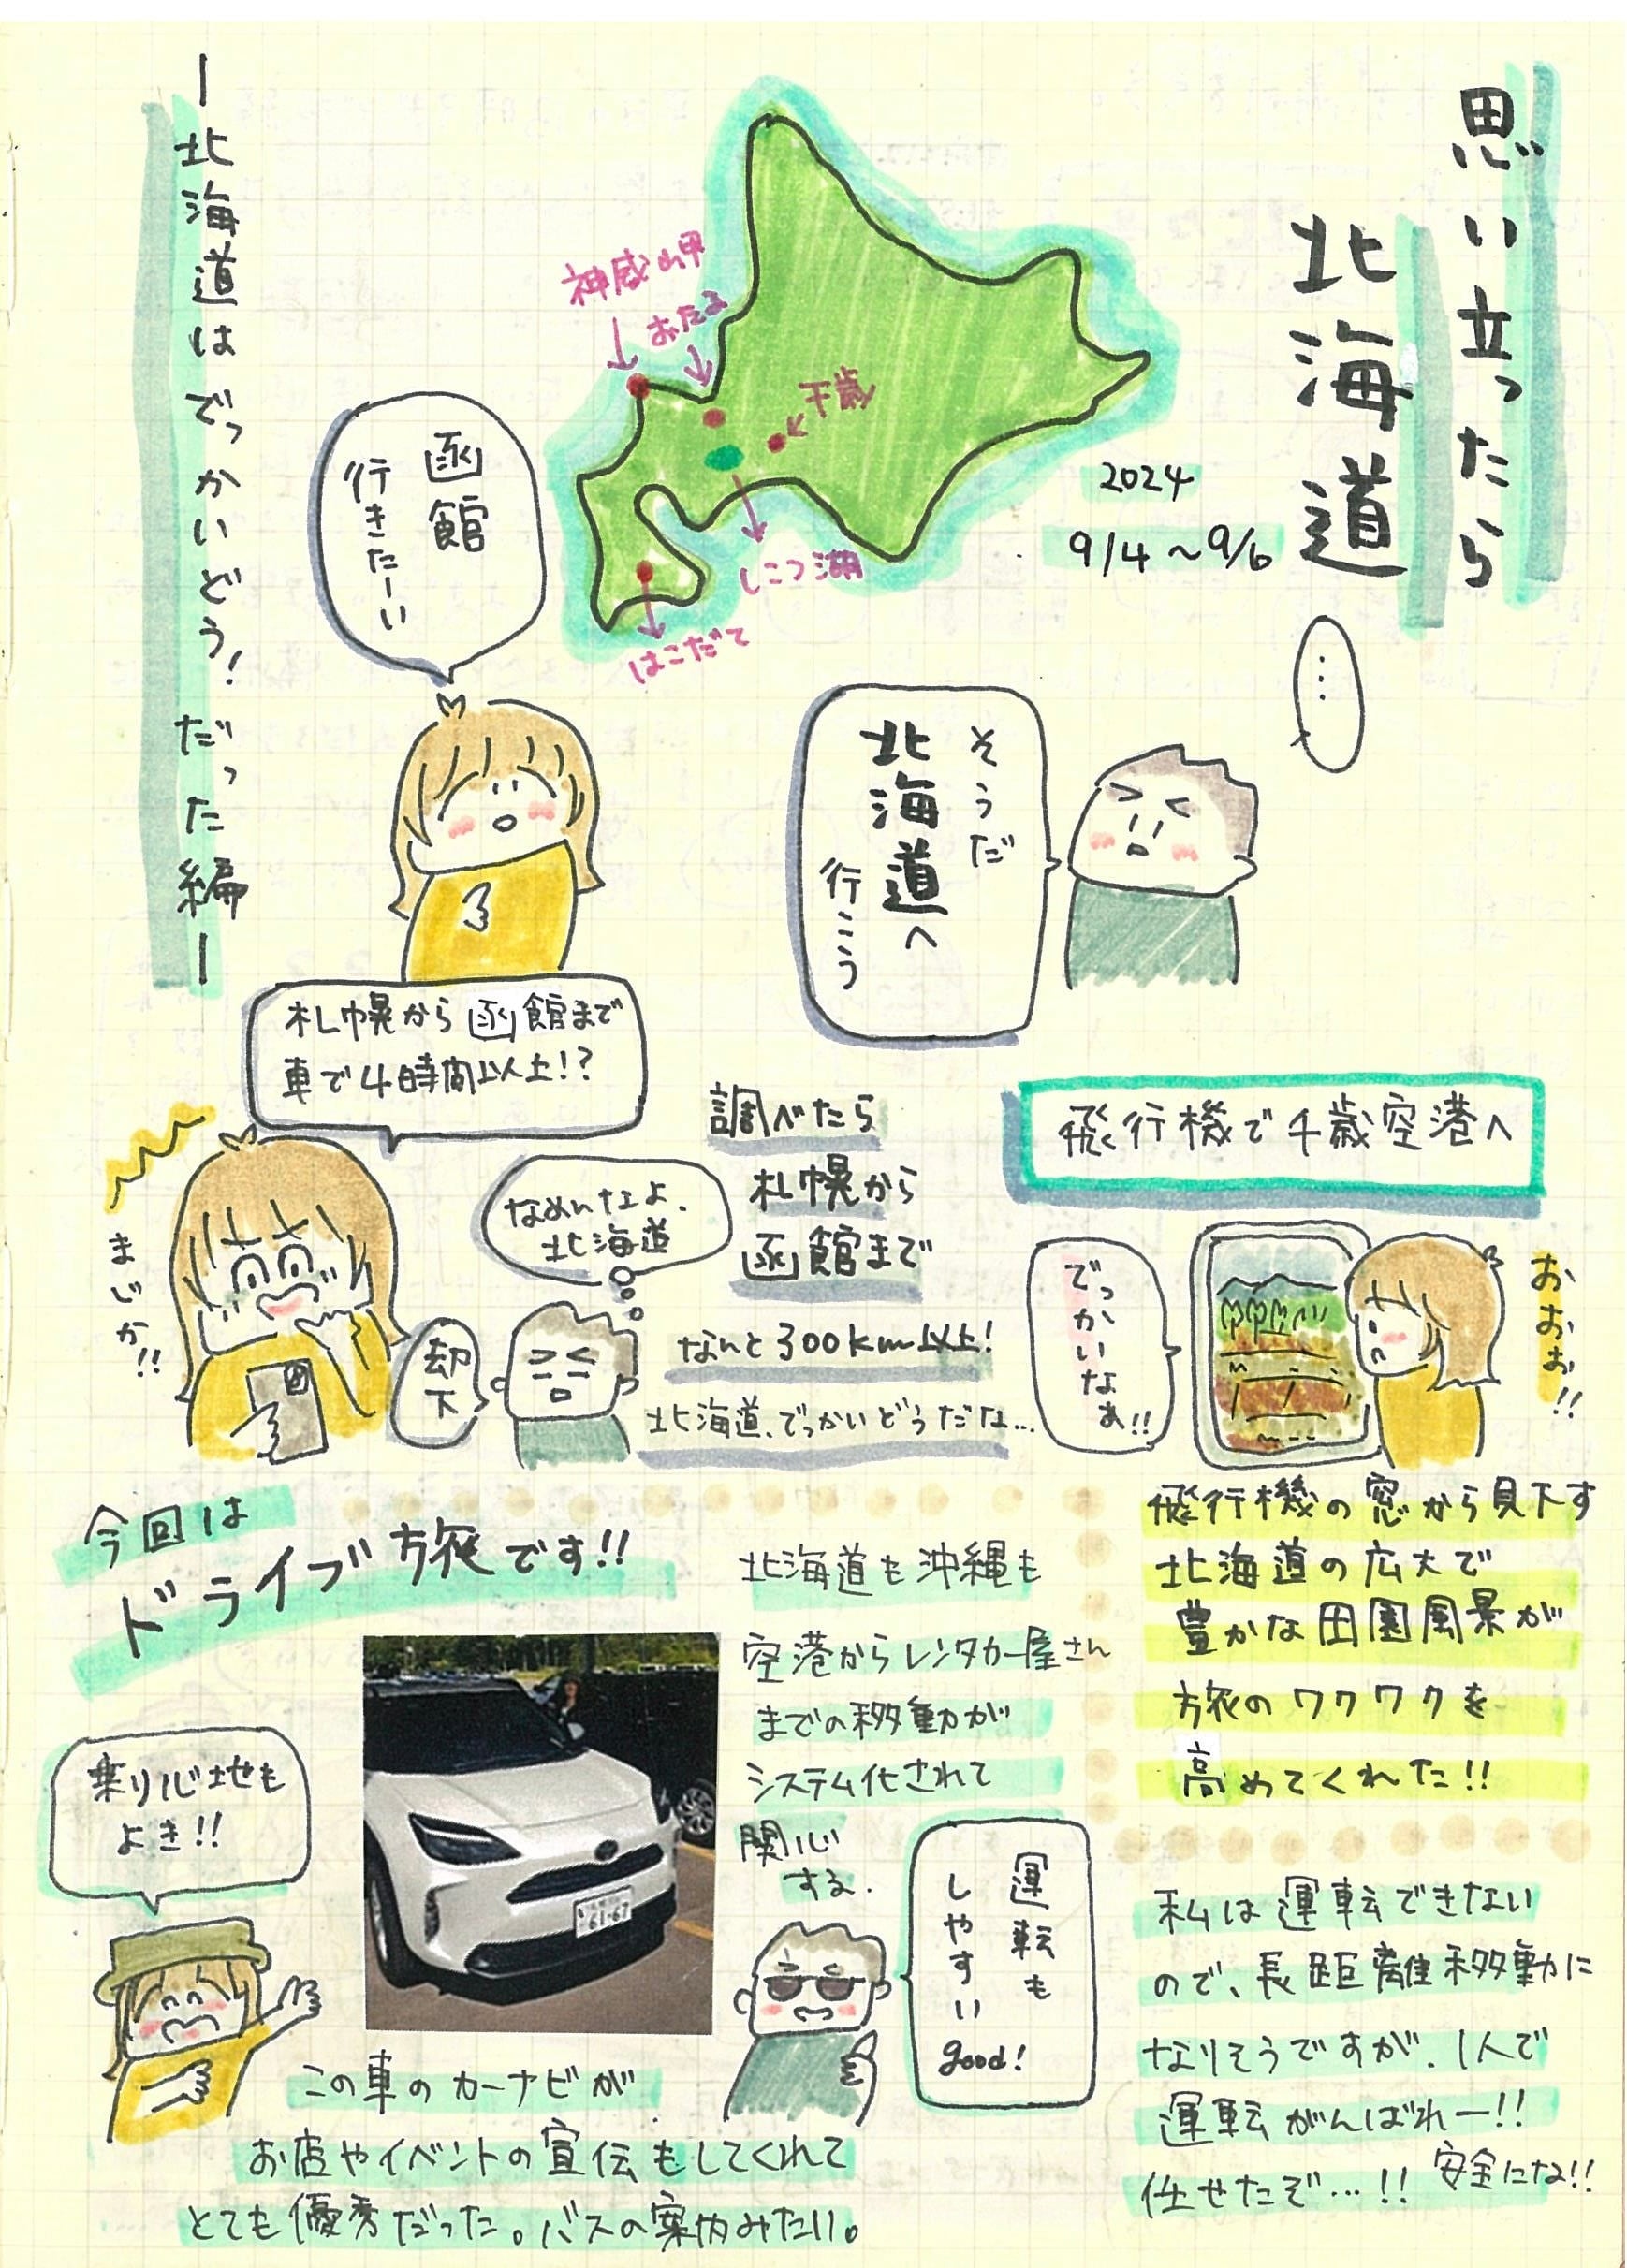 思い立ったら
北海道
2024
9/4～9/6
神威岬
おたる
千歳
しこつ湖
はこだて
ー北海道はでっかいどう!だった編ー
…
そうだ
北海道へ
行こう
函館
行きたーい
飛行機で千歳空港へ
おおお!!
でっかいなぁ!!
飛行機の窓から見下す
北海道の広大で
豊かな田園風景が
旅のワクワクを
高めてくれた!!
調べたら
札幌から
函館まで
なんと300km以上!
北海道、でっかいどうだな…
札幌から函館まで
車で4時間以上!?
なめんなよ、
北海道
却下
まじか!!
今回は
ドライブ旅です!!
私は運転できない
ので、長距離移動に
なりそうですが、1人で
運転がんばれー!!
任せたぞ…!!
安全にな!!
北海道も沖縄も
空港からレンタカー屋さん
までの移動が
システム化されて
関心
する.
運転も
しやすい
good!
61-67
乗り心地も
よき!!
この車のカーナビが
お店やイベントの宣伝もしてくれて
とても優秀だった。バスの案内みたい。